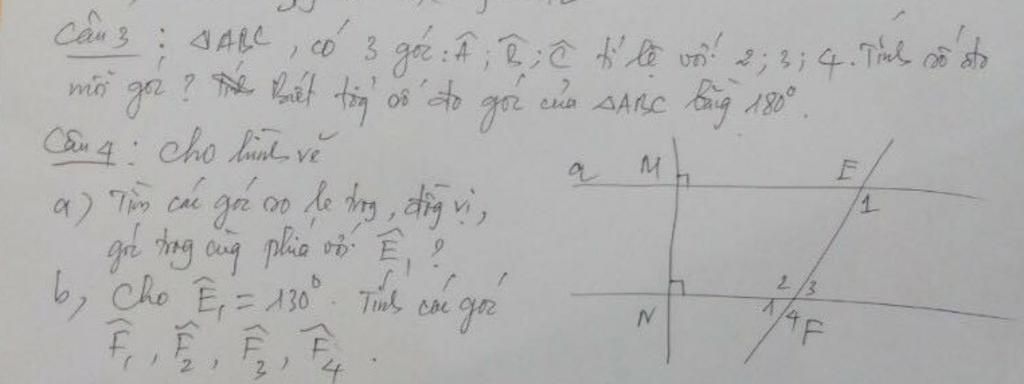 Câu 3 : ΔABC, có 3 góc : Â ; B̂ ; Ĉ tỉ lệ với 2 ; 3 ; 4. Tính số đo
mỗi góc ? Biết tổng số đo góc của ΔABC bằng 180°.
Câu 4 : Cho hình vẽ
a) Tìm các góc so le trong, đồng vị,
góc trong cùng phía với Ê₁ ?
b, Cho Ê₁ = 130°. Tính các góc
F̂₁, F̂₂, F̂₃, F̂₄.
a M E
1
2 3
1 4
N F